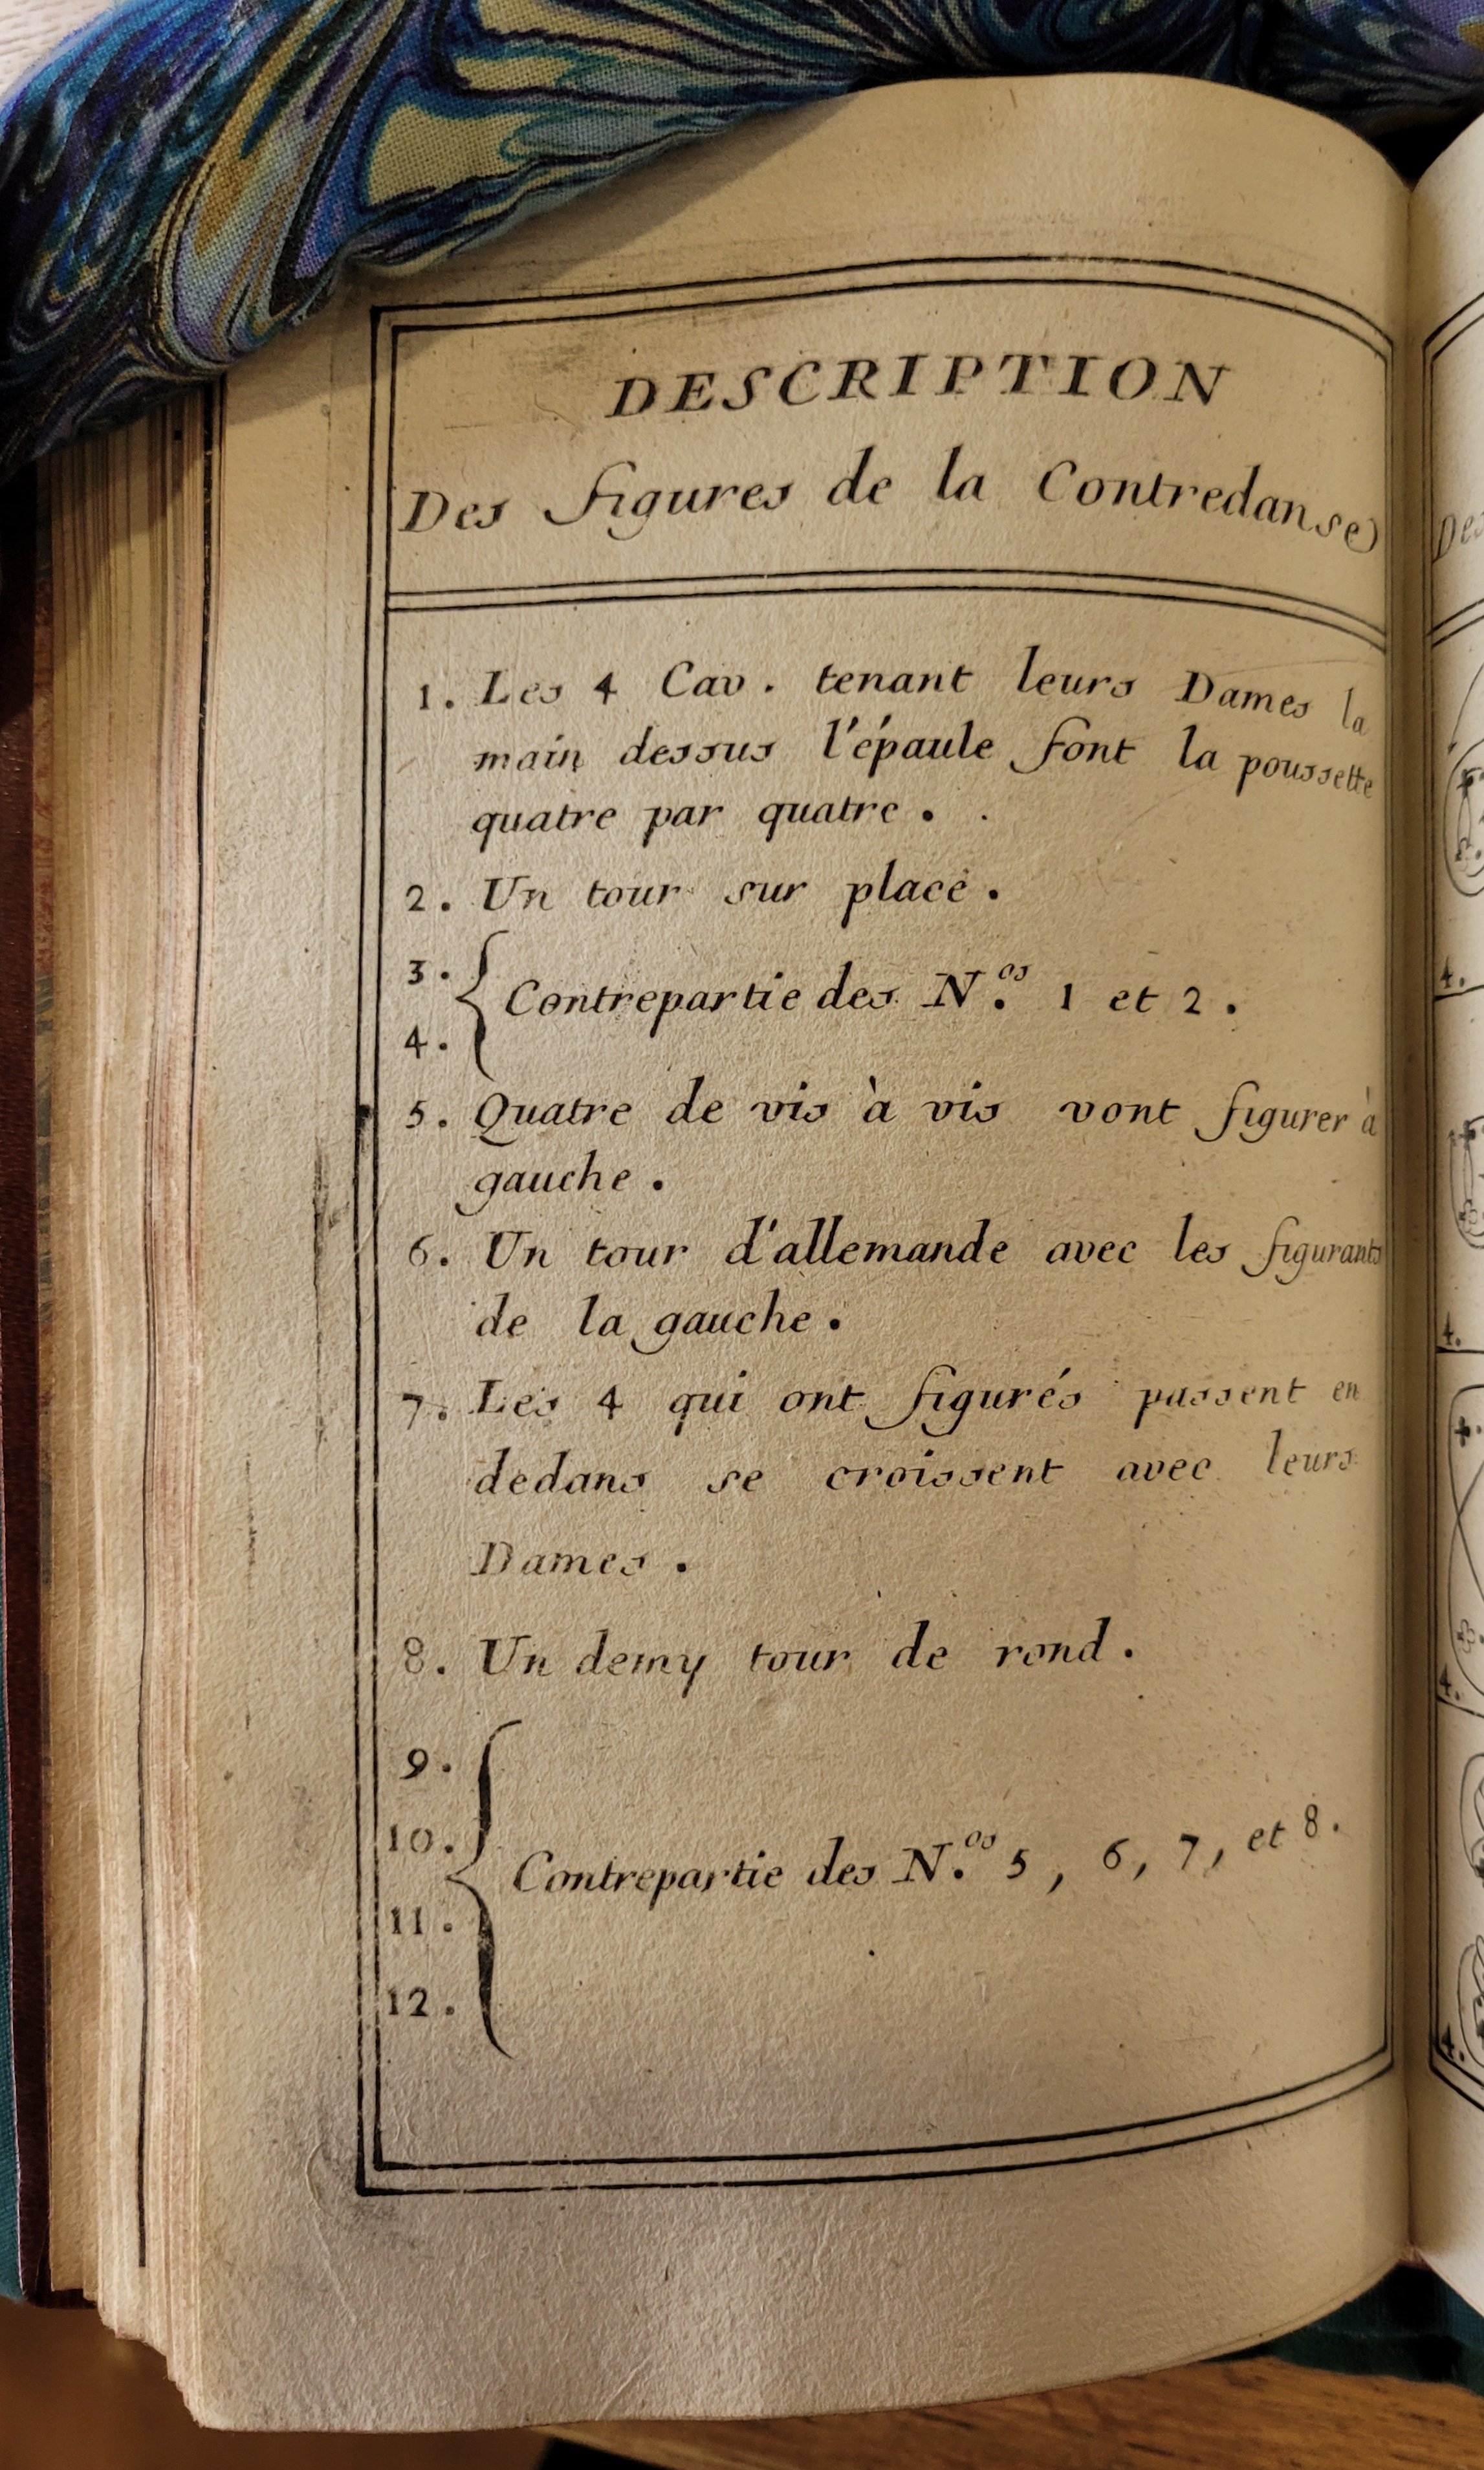 DESCRIPTION
Des figures de la Contredanse
1. Les 4 Cav. tenant leurs Dames la
main dessus l'épaule font la poussette
quatre par quatre.
2. Un tour sur place.
3.
Contrepartie des N.os 1 et 2.
4.
5. Quatre de vis à vis vont figurer à
gauche.
6. Un tour d'allemande avec les figurants
de la gauche.
7. Les 4 qui ont figurés passent en
dedans se croissent avec leurs
Dames.
8. Un demy tour de rond.
9.
10.
Contrepartie des N.os 5, 6, 7, et 8.
11.
12.
4.
4.
4.
4.